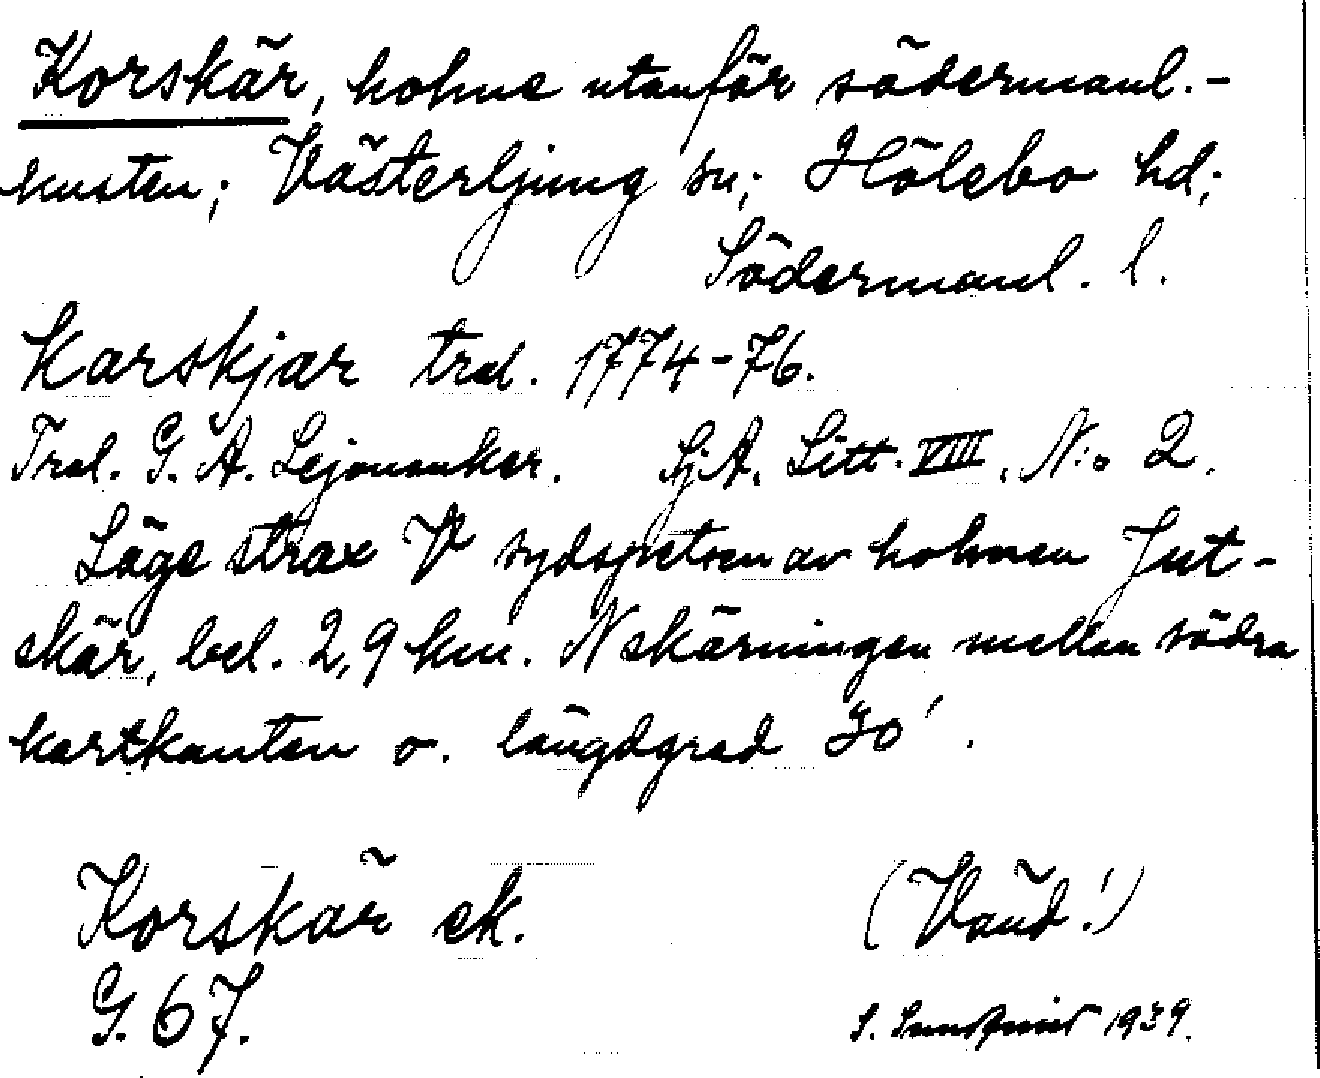 Korskär, holme utanför södermanl.-
kusten; Västerljung sn; Hölebo hd;
Södermanl. l.
Karskjar trol. 1774-76.
Trol. G. A. Lejonanker. SjA, Litt. VIII, No 2.
Läge strax V sydspetsen av holmen Jut-
skär, bel. 2,9 km. N skärningen mellan södra
kartkanten o. längdgrad 30'.
Korskär ek.
(Vänd!)
G. 67.
S. Sundqvist 1939.